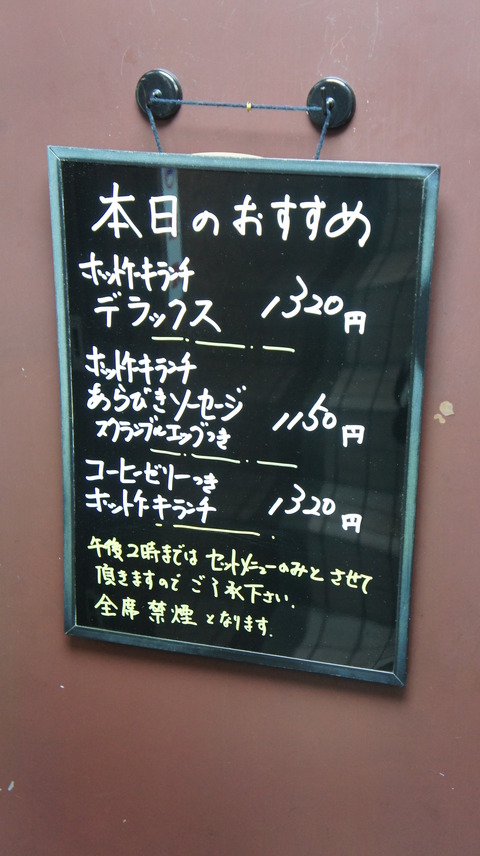 本日のおすすめ
ホットケーキランチ
デラックス 1320円
ホットケーキランチ
あらびきソーセージ 1150円
スクランブルエッグつき
コーヒーゼリーつき
ホットケーキランチ 1320円
午後2時まではセットメニューのみとさせて
頂きますのでご了承下さい.
全席禁煙となります.